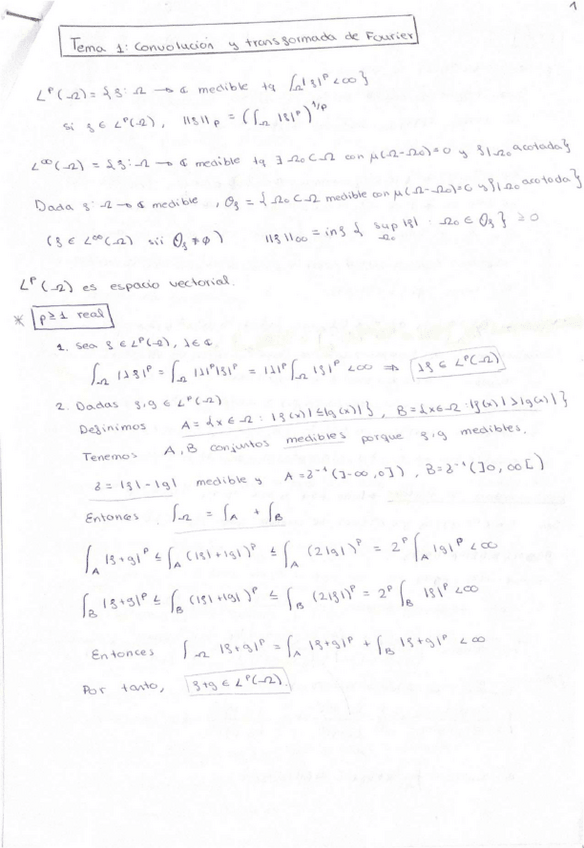 1
Tema 1: Convolución y transformada de Fourier
L^p(Ω) = {f: Ω → ℂ medible tq ∫_Ω |f|^p < ∞}
Si f ∈ L^p(Ω), ||f||_p = (∫_Ω |f|^p)^{1/p}
L^∞(Ω) = {f: Ω → ℂ medible tq ∃ Ω₀ ⊂ Ω con μ(Ω-Ω₀)=0 y f|_Ω₀ acotada}
Dada f: Ω → ℂ medible, Θ_f = {Ω₀ ⊂ Ω medible con μ(Ω-Ω₀)=0 y f|_Ω₀ acotada}
(f ∈ L^∞(Ω) sii Θ_f ≠ ∅) ||f||_∞ = inf { sup_Ω₀ |f| : Ω₀ ∈ Θ_f } ≥ 0
L^p(Ω) es espacio vectorial.
* p ≥ 1 real
1. Sea f ∈ L^p(Ω), λ ∈ ℂ
∫_Ω |λf|^p = ∫_Ω |λ|^p |f|^p = |λ|^p ∫_Ω |f|^p < ∞ ⇒ λf ∈ L^p(Ω)
2. Dadas f,g ∈ L^p(Ω)
Definimos A = {x ∈ Ω : |f(x)| ≤ |g(x)|}, B = {x ∈ Ω : |f(x)| > |g(x)|}
Tenemos A, B conjuntos medibles porque f,g medibles.
γ = |f| - |g| medible y A = γ⁻¹(]-∞,0]), B = γ⁻¹(]0,∞[)
Entonces ∫_Ω = ∫_A + ∫_B
∫_A |f+g|^p ≤ ∫_A (|f|+|g|)^p ≤ ∫_A (2|g|)^p = 2^p ∫_A |g|^p < ∞
∫_B |f+g|^p ≤ ∫_B (|f|+|g|)^p ≤ ∫_B (2|f|)^p = 2^p ∫_B |f|^p < ∞
Entonces ∫_Ω |f+g|^p = ∫_A |f+g|^p + ∫_B |f+g|^p < ∞
Por tanto, f+g ∈ L^p(Ω).